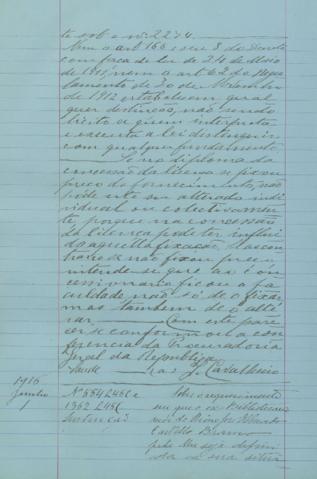 te sob o nº 2274.
Nem o artº 163 e seu § do Decreto
com força de lei de 24 de Maio
de 1911, nem o artº 62 do Regu
lamento de de
de 1912 estabelecem qual
quer distincção, não sendo
licito a quem interpreta
e executa a lei distinguir
com qualquer fundamento
Se no diploma da
concessão da licença se fixou
preço do fornecimento, não
póde este ser alterado indi
vidual ou colectivamen
te, porque na concessão
da licença póde ter influi
do aquella fixação. Se ao con
trario se não fixou preço
entende-se que ao con
cessionario ficou a fa
culdade não só de o fixar
mas tambem de o alte
rar. Com este pare
cer se conformou a con
ferencia da Procuradoria
Geral da Republica.
Saude J. Cavalheiro
1916
Janeiro
1
Nº 584 245 C e
1362 245 C
Sobre o requerimento
em que
Castello Branco
pede lhe seja defini
da a sua situa